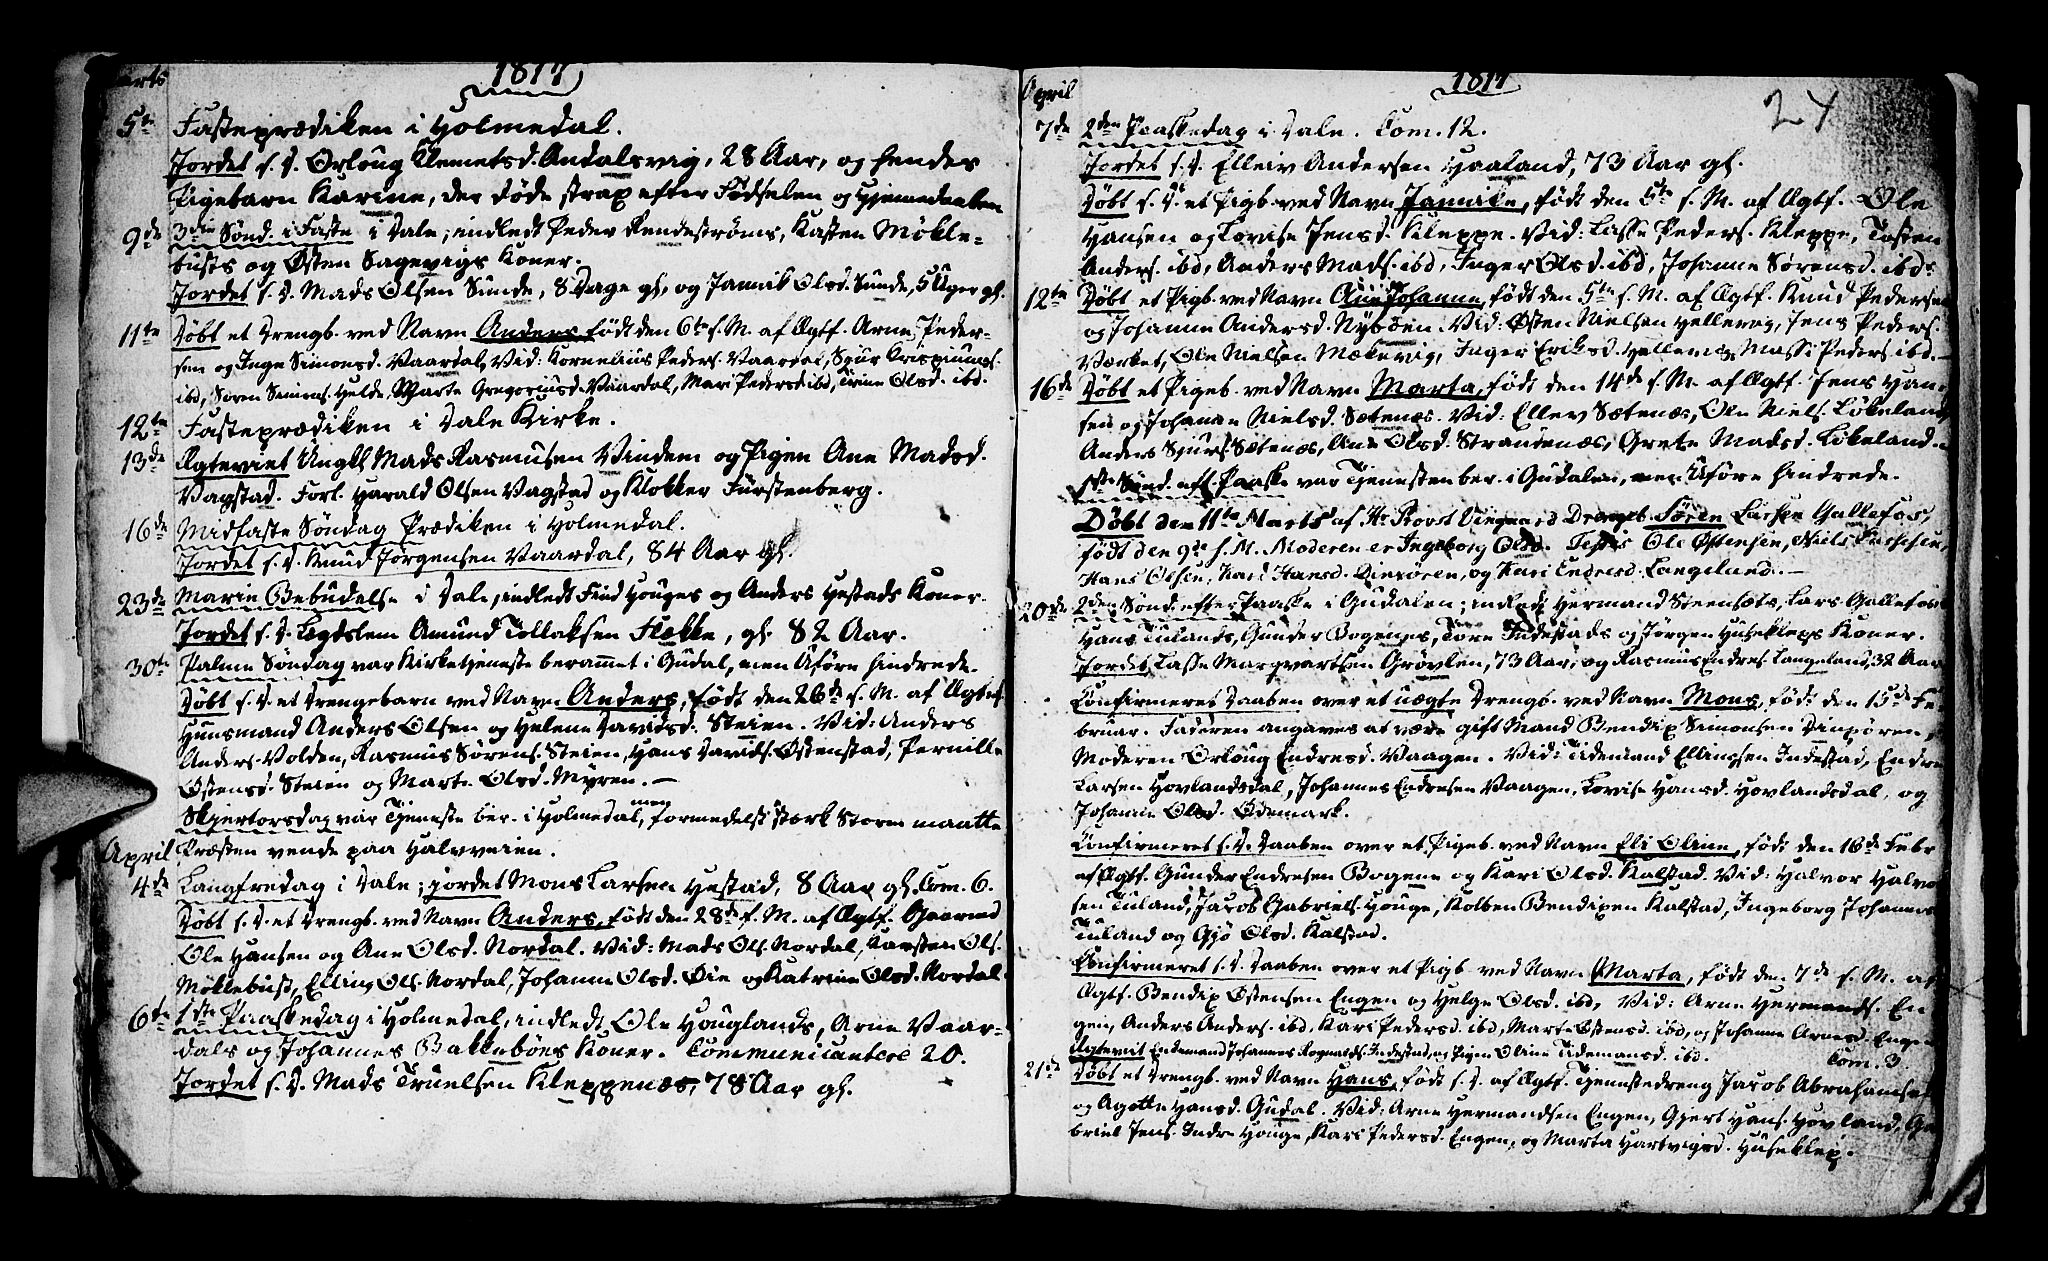 1817
5te Fasteprædiken i Holmedal.
Jordet s. D. Ørloug Klemetsd. Andalsvig, 28 Aar, og hendes
Pigebarn Karine, der døde strax efter Fødselen og Hjemmedaaben
9de 3die Sønd. i Faste i Dale; indledt Peder Rendestrøms, Kasten Møkle-
busts og Østen Sagevigs Koner.
Jordet s. D. Mads Olsen Sunde, 8 Dage gl. og Jannik Olsd. Sunde, 5 Uger gl.
11te Døbt et Drengb. ved Navn Anders, født den 6te s. M. af Ægtf. Arne Peder-
sen og Inge Simonsd. Vaardal, Vid: Kornelius Peders. Vaardal, Sjur Crispinus.
ibd, Søren Simons. Helde, Marte Gregoriusd. Vaardal, Mari Pedersd ibd, Trine Olsd. ibd.
12te Fasteprædiken i Dale Kirke.
13de Ægteviet Ungkl Mads Rasmusen Vindem og Pigen Ane Madsd.
Vagstad. Forl. Harald Olsen Vagstad og Klokker Fürstenberg.
16de Midfaste Søndag Prædiken i Holmedal.
Jordet s. D. Knud Jørgensen Vaardal, 84 Aar gl.
23de Mariæ Bebudelse i Dale, indledt Find Houges og Anders Hestads Koner.
Jordet s. D. Lægdslem Amund Tollaksen Flekke, gl. 82 Aar.
30te Palme Søndag var Kirketjeneste berammet i Gudal, men Uføre hindrede.
Døbt s. D. et Drengebarn ved Navn Anders, født den 26de s. M. af Ægtef.
Huusmand Anders Olsen og Helene Davidsd. Steien. Vid: Anders
Anders. Volden, Rasmus Sørens. Steien, Hans Davids. Østenstad, Pernille
Østensd. Steien og Marte Olsd. Myren. —
Skjertorsdag var Tjeneste ber. i Holmedal, men formedelst stærk Storm maatte
April Præsten vende paa Halvveien.
4de Langfredag i Dale; jordet Mons Larsen Hestad, 8 Aar gl. Com. 6.
Døbt s. D. et Drengb. ved Navn Anders, født den 28de f. M. af Ægtf. Gaarmd
Ole Hansen og Ane Olsd. Nordal. Vid: Mads Ols. Nordal, Karsten Ols.
Møklebust, Elling Ols. Nordal, Johanne Olsd. Øie og Katrine Olsd. Nordal.
6te 1ste Paaskedag i Holmedal, indledt Ole Houglands, Arne Vaar-
dals og Johannes Bakkebøes Koner. Communicantere 20.
Jordet s. D. Mads Truelsen Kleppenæs, 78 Aar gl.
April
1817
24
7de 2den Paaskedag i Dale. Com. 12.
Jordet s. D. Elleiv Andersen Haaland, 73 Aar gl.
Døbt s. D. et Pigb. ved Navn Jannike, født den 5te s. M. af Ægtf. Ole
Hansen og Lovise Jensd. Kleppe. Vid: Lasse Peders. Kleppe, Tosten
Anders. ibd, Anders Mads. ibd, Inger Olsd. ibd, Johanne Sørensd. ibd.
12te Døbt et Pigb. ved Navn Ane Johanne, født den 5te s. M. af Ægtf. Knud Pedersen
og Johanne Andersd. Nybøen. Vid: Østen Nielsen Hellevig, Jens Peders.
Værket, Ole Nielsen Mækevig, Inger Eriksd. Hellevig, Massi Peders ibd. —
16de Døbt et Pigeb. ved Navn Marta, født den 14de s. M. af Ægtf. Jens Han-
sen og Johanne Nielsd. Sætenæs. Vid: Ellev Sætenæs, Ole Niels. Løkeland,
Anders Sjurs. Sætenæs, Ane Olsd. Strandenæs, Grete Madsd. Løkeland.
1ste Sønd. eft. Paaske var Tjenesten ber. i Gudalen, men Uføre hindrede.
Døbt den 11te Marts af Hr. Provst Drengeb. Søren Lassen Gallefos,
født den 9de s. M. Moderen er Ingeborg Olsd. Testes Ole Østensen, Niels
Hans Olsen, Kari Hansd. Dinsøren, og Kari Endresd. Langeland. —
20de 2den Sønd. efter Paaske i Gudalen; indledt Hermand Steensæts, Lars Gallefos
Hans Tulands, Gunder Bogenes, Tore Indestads og Jørgen Huseklepps Koner.
Jordet Lasse Margvartsen Grøvlen, 73 Aar, og Rasmus Endres. Langeland, 32 Aar
Confirmeret Daaben over et uægte Drengb. ved Navn Mons, født den 15de Fe-
bruar. Faderen angaves at være gift Mand Bendix Simonsen Dinsøren,
Moderen Ørloug Endresd. Vaagen. Vid: Tidemand Ellingsen Indestad, Endre
Larsen Hovlandsdal, Johannes Endresen Vaagen, Lovise Hansd. Hovlandsdal, og
Johanne Olsd. Ødemark.
Confirmeret s. D. Daaben over et Pigeb. ved Navn Eli Oline, født den 16de Febr
af Ægtf. Gunder Endresen Bogene og Kari Olsd. Kalstad. Vid: Halvor Halvor
sen Tuland, Jacob Gabriels. Houge, Kolben Bendixen Kalstad, Ingeborg Johannes
Tuland og Gjø Olsd. Kalstad.
Confirmeret s. D. Daaben over et Pigb ved Navn Marta, født den 7de s. M. af
Ægtf. Bendix Østensen Engen og Helge Olsd. ibd. Vid: Arne Hermands. En-
gen, Anders Anders. ibd, Kari Pedersd. ibd, Marte Østensd. ibd, og Johanne Arnesd. Engen
Ægteviet Enkemand Johannes Rognalds. Indestad, og Pigen Oline Tidemansd. ibd. Com. 3.
21de Døbt et Drengb. ved Navn Hans, født s. D. af Ægtf. Tjenestedreng Jacob Abrahamsen
og Agotte Hansd. Gudal. Vid: Arne Hermandsen Engen, Gjert Hans. Hovland, Ga-
briel Jens. Indre Houge, Kari Pedersd. Engen, og Marta Hartvigsd. Huseklep.